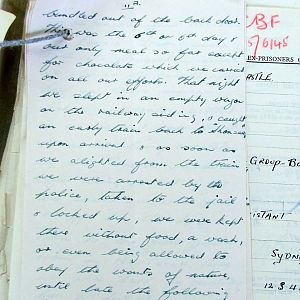 11a.
bundled out of the back door.
This was the 5th or 6th day &
our only meal so far except
for chocolate which we carried
on all our efforts. That night
we slept in an empty wagon
on the railway siding, & caught
an early train back to
upon arrival & as soon as
we alighted from the train
we were arrested by the
police, taken to the jail
& locked up, we were kept
there without food, a wash,
or even being allowed to
obey the wants of nature,
until late the following
CBF
EX-PRISONERS
GROUP-
SYDN